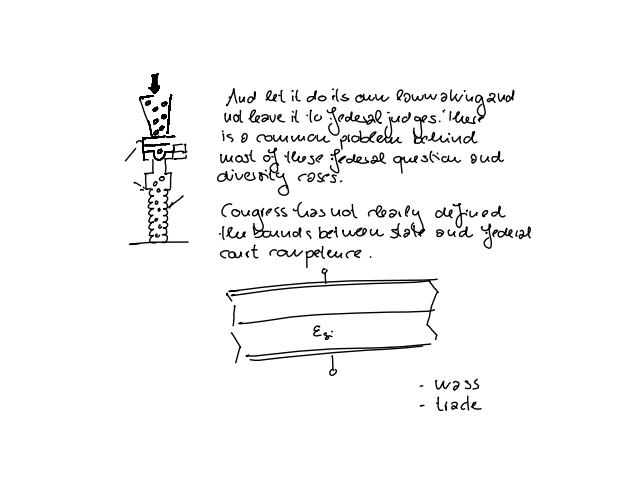 And let it do its own lawmaking and
not leave it to federal judges. There
is a common problem behind
most of these federal question and
diversity cases.
Congress has not clearly defined
the bounds between state and federal
court competence.
εsi
- wass
- trade